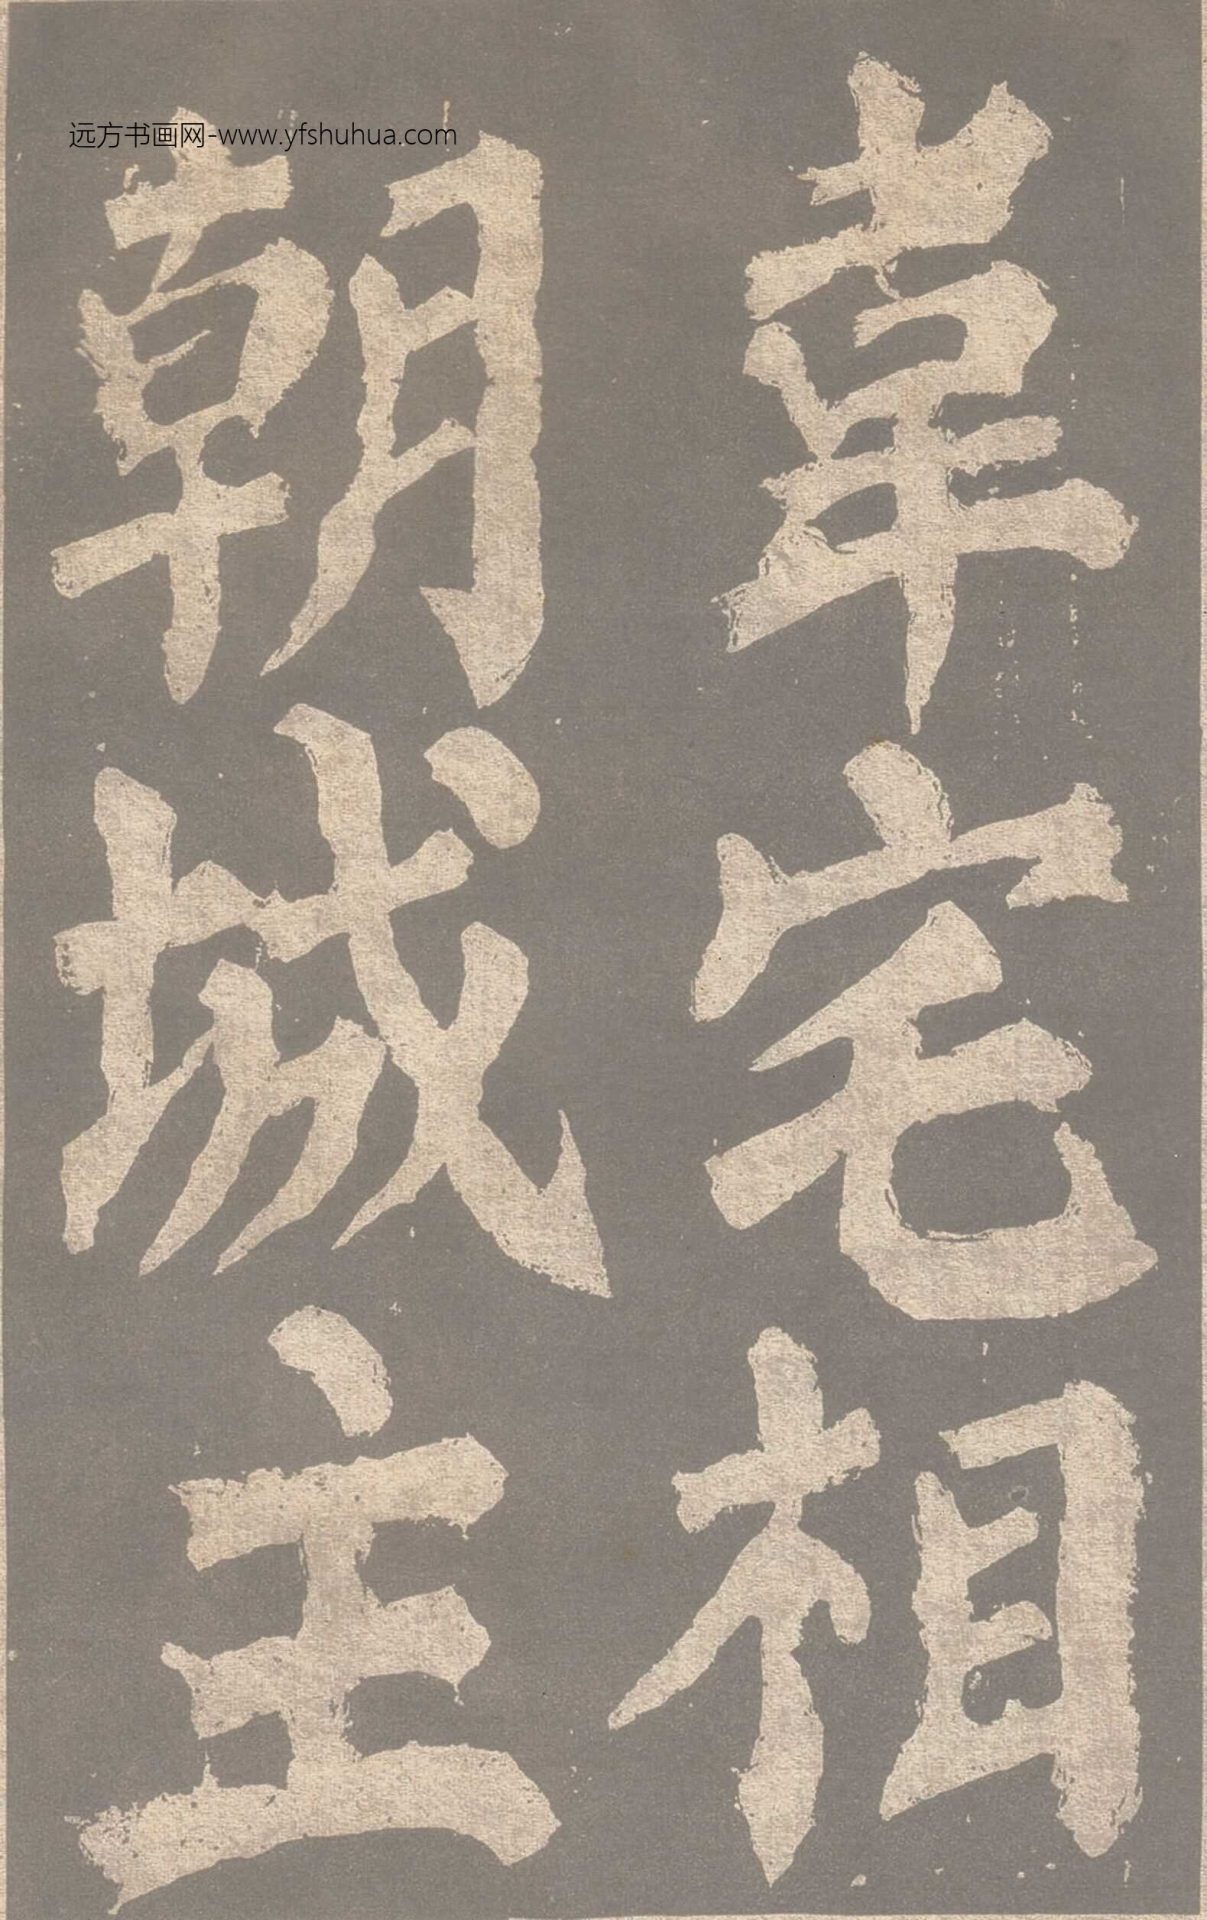 远方书画网-www.yfshuhua.com
韋宅相
朝城主